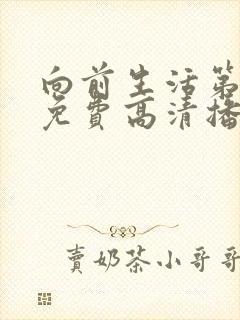 向前生活第
免費高清播
賣奶茶小哥哥